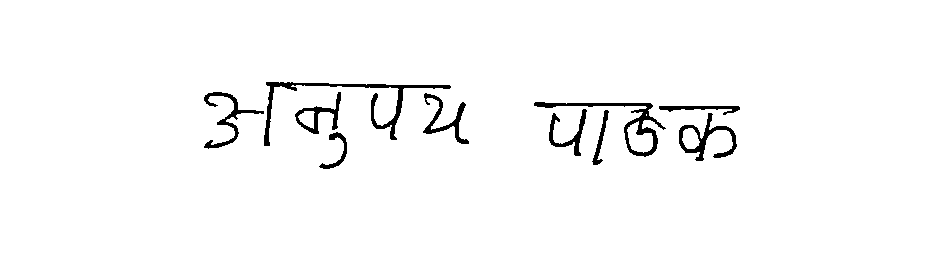 अनुपथ पाठक